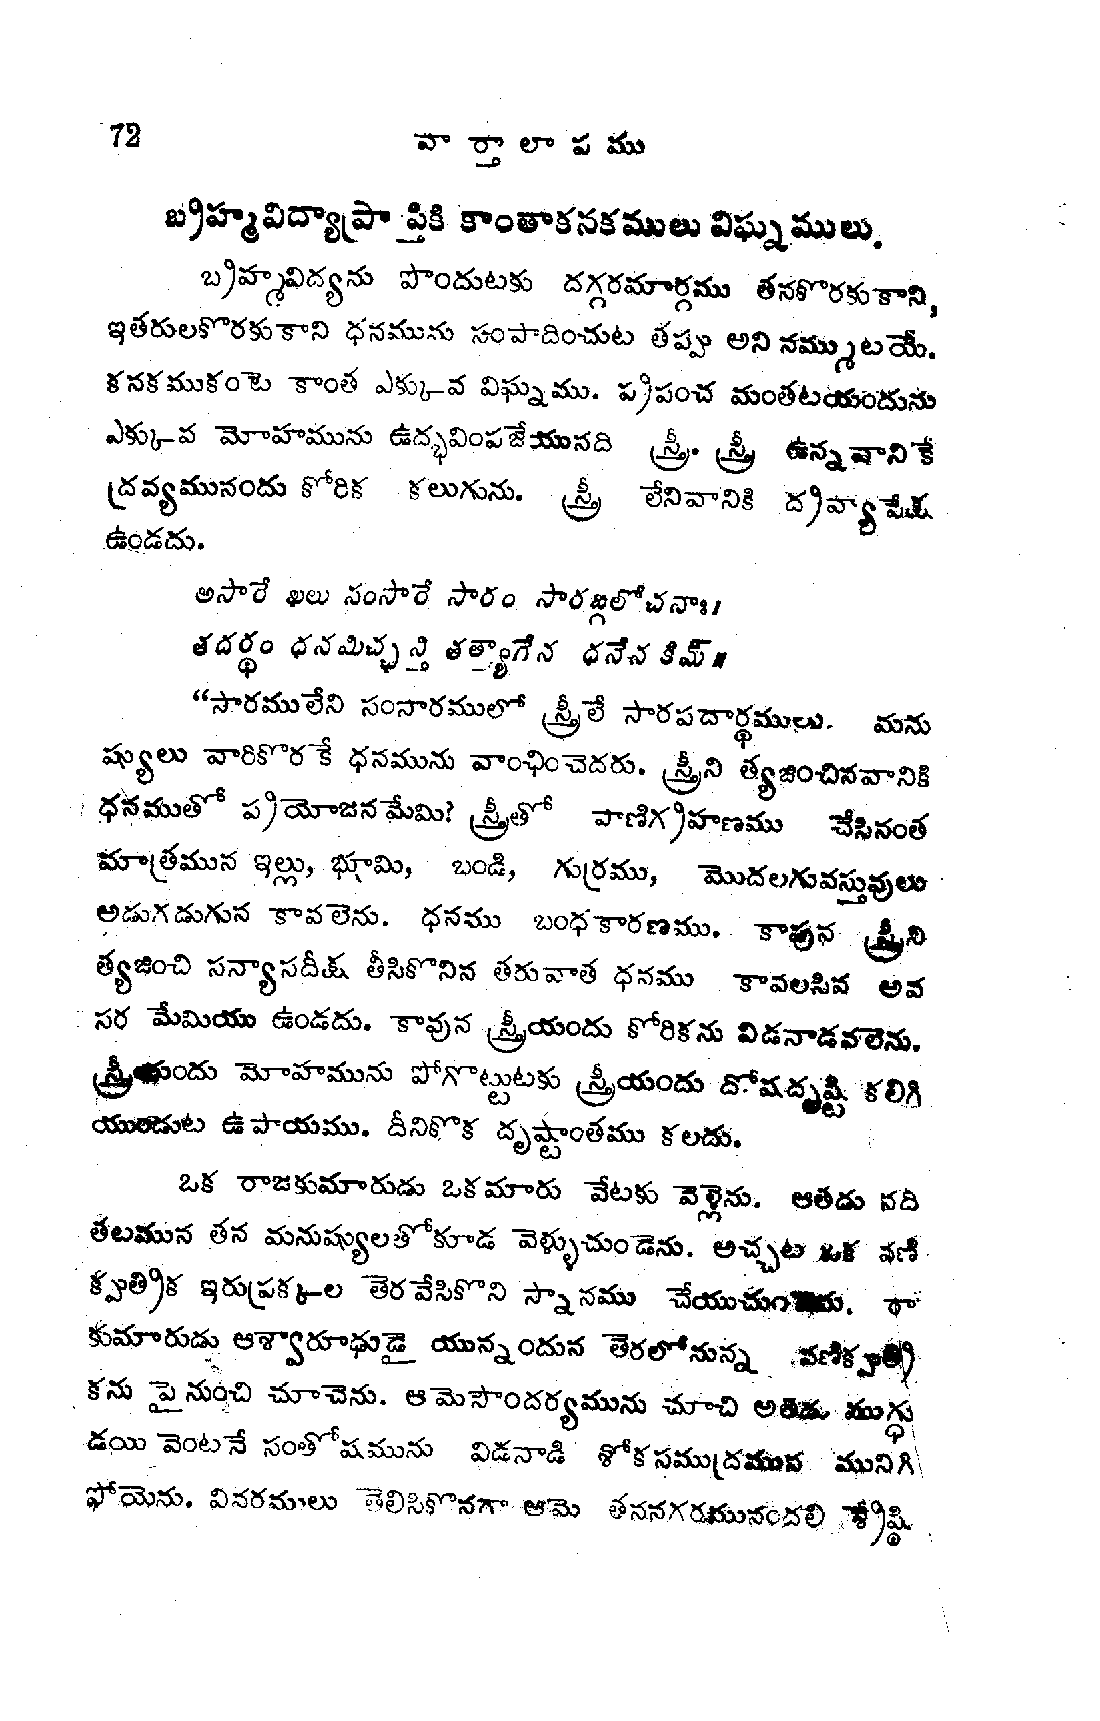 72
వార్తాలాపము
బ్రహ్మవిద్యాప్రాప్తికి కాంతాకనకములు విఘ్నములు.
బ్రహ్మవిద్యను పొందుటకు దగ్గరమార్గము తనకొరకుకాని,
ఇతరులకొరకుకాని ధనమును సంపాదించుట తప్పు అని నమ్ముటయే.
కనకముకంటె కాంత ఎక్కువ విఘ్నము. ప్రపంచ మంతటయందును
ఎక్కువ మోహమును ఉద్భవింపజేయునది స్త్రీ. స్త్రీ ఉన్నవానికే
ద్రవ్యమునందు కోరిక కలుగును. స్త్రీ లేనివానికి ద్రవ్యాపేక్ష
ఉండదు.
అసారే ఖలు సంసారే సారం సారఙ్గలోచనాః।
తదర్థం ధనమిచ్ఛన్తి తత్త్యాగేన ధనేన కిమ్॥
“సారములేని సంసారములో స్త్రీలే సారపదార్థములు. మను
ష్యులు వారికొరకే ధనమును వాంఛించెదరు. స్త్రీని త్యజించినవానికి
ధనముతో ప్రయోజనమేమి? స్త్రీతో పాణిగ్రహణము చేసినంత
మాత్రమున ఇల్లు, భూమి, బండి, గుర్రము, మొదలగువస్తువులు
అడుగడుగున కావలెను. ధనము బంధకారణము. కావున స్త్రీని
త్యజించి సన్యాసదీక్ష తీసికొనిన తరువాత ధనము కావలసిన అవ
సర మేమియు ఉండదు. కావున స్త్రీయందు కోరికను విడనాడవలెను.
స్త్రీయందు మోహమును పోగొట్టుటకు స్త్రీయందు దోషదృష్టి కలిగి
యుండుట ఉపాయము. దీనికొక దృష్టాంతము కలదు.
ఒక రాజకుమారుడు ఒకమారు వేటకు వెళ్లెను. ఆతడు నది
తటమున తన మనుష్యులతోకూడ వెళ్ళుచుండెను. అచ్చట ఒక వణి
క్పుత్రిక ఇరుప్రక్కల తెరవేసికొని స్నానము చేయుచుండెను. రా
కుమారుడు ఆశ్వారూఢుడై యున్నందున తెరలోనున్న వణిక్పుత్రి
కను పైనుంచి చూచెను. ఆమెసౌందర్యమును చూచి అతడు ముగ్ధు
డయి వెంటనే సంతోషమును విడనాడి శోకసముద్రమున మునిగి
పోయెను. వివరములు తెలిసికొనగా ఆమె తననగరమునందలి శ్రేష్ఠి